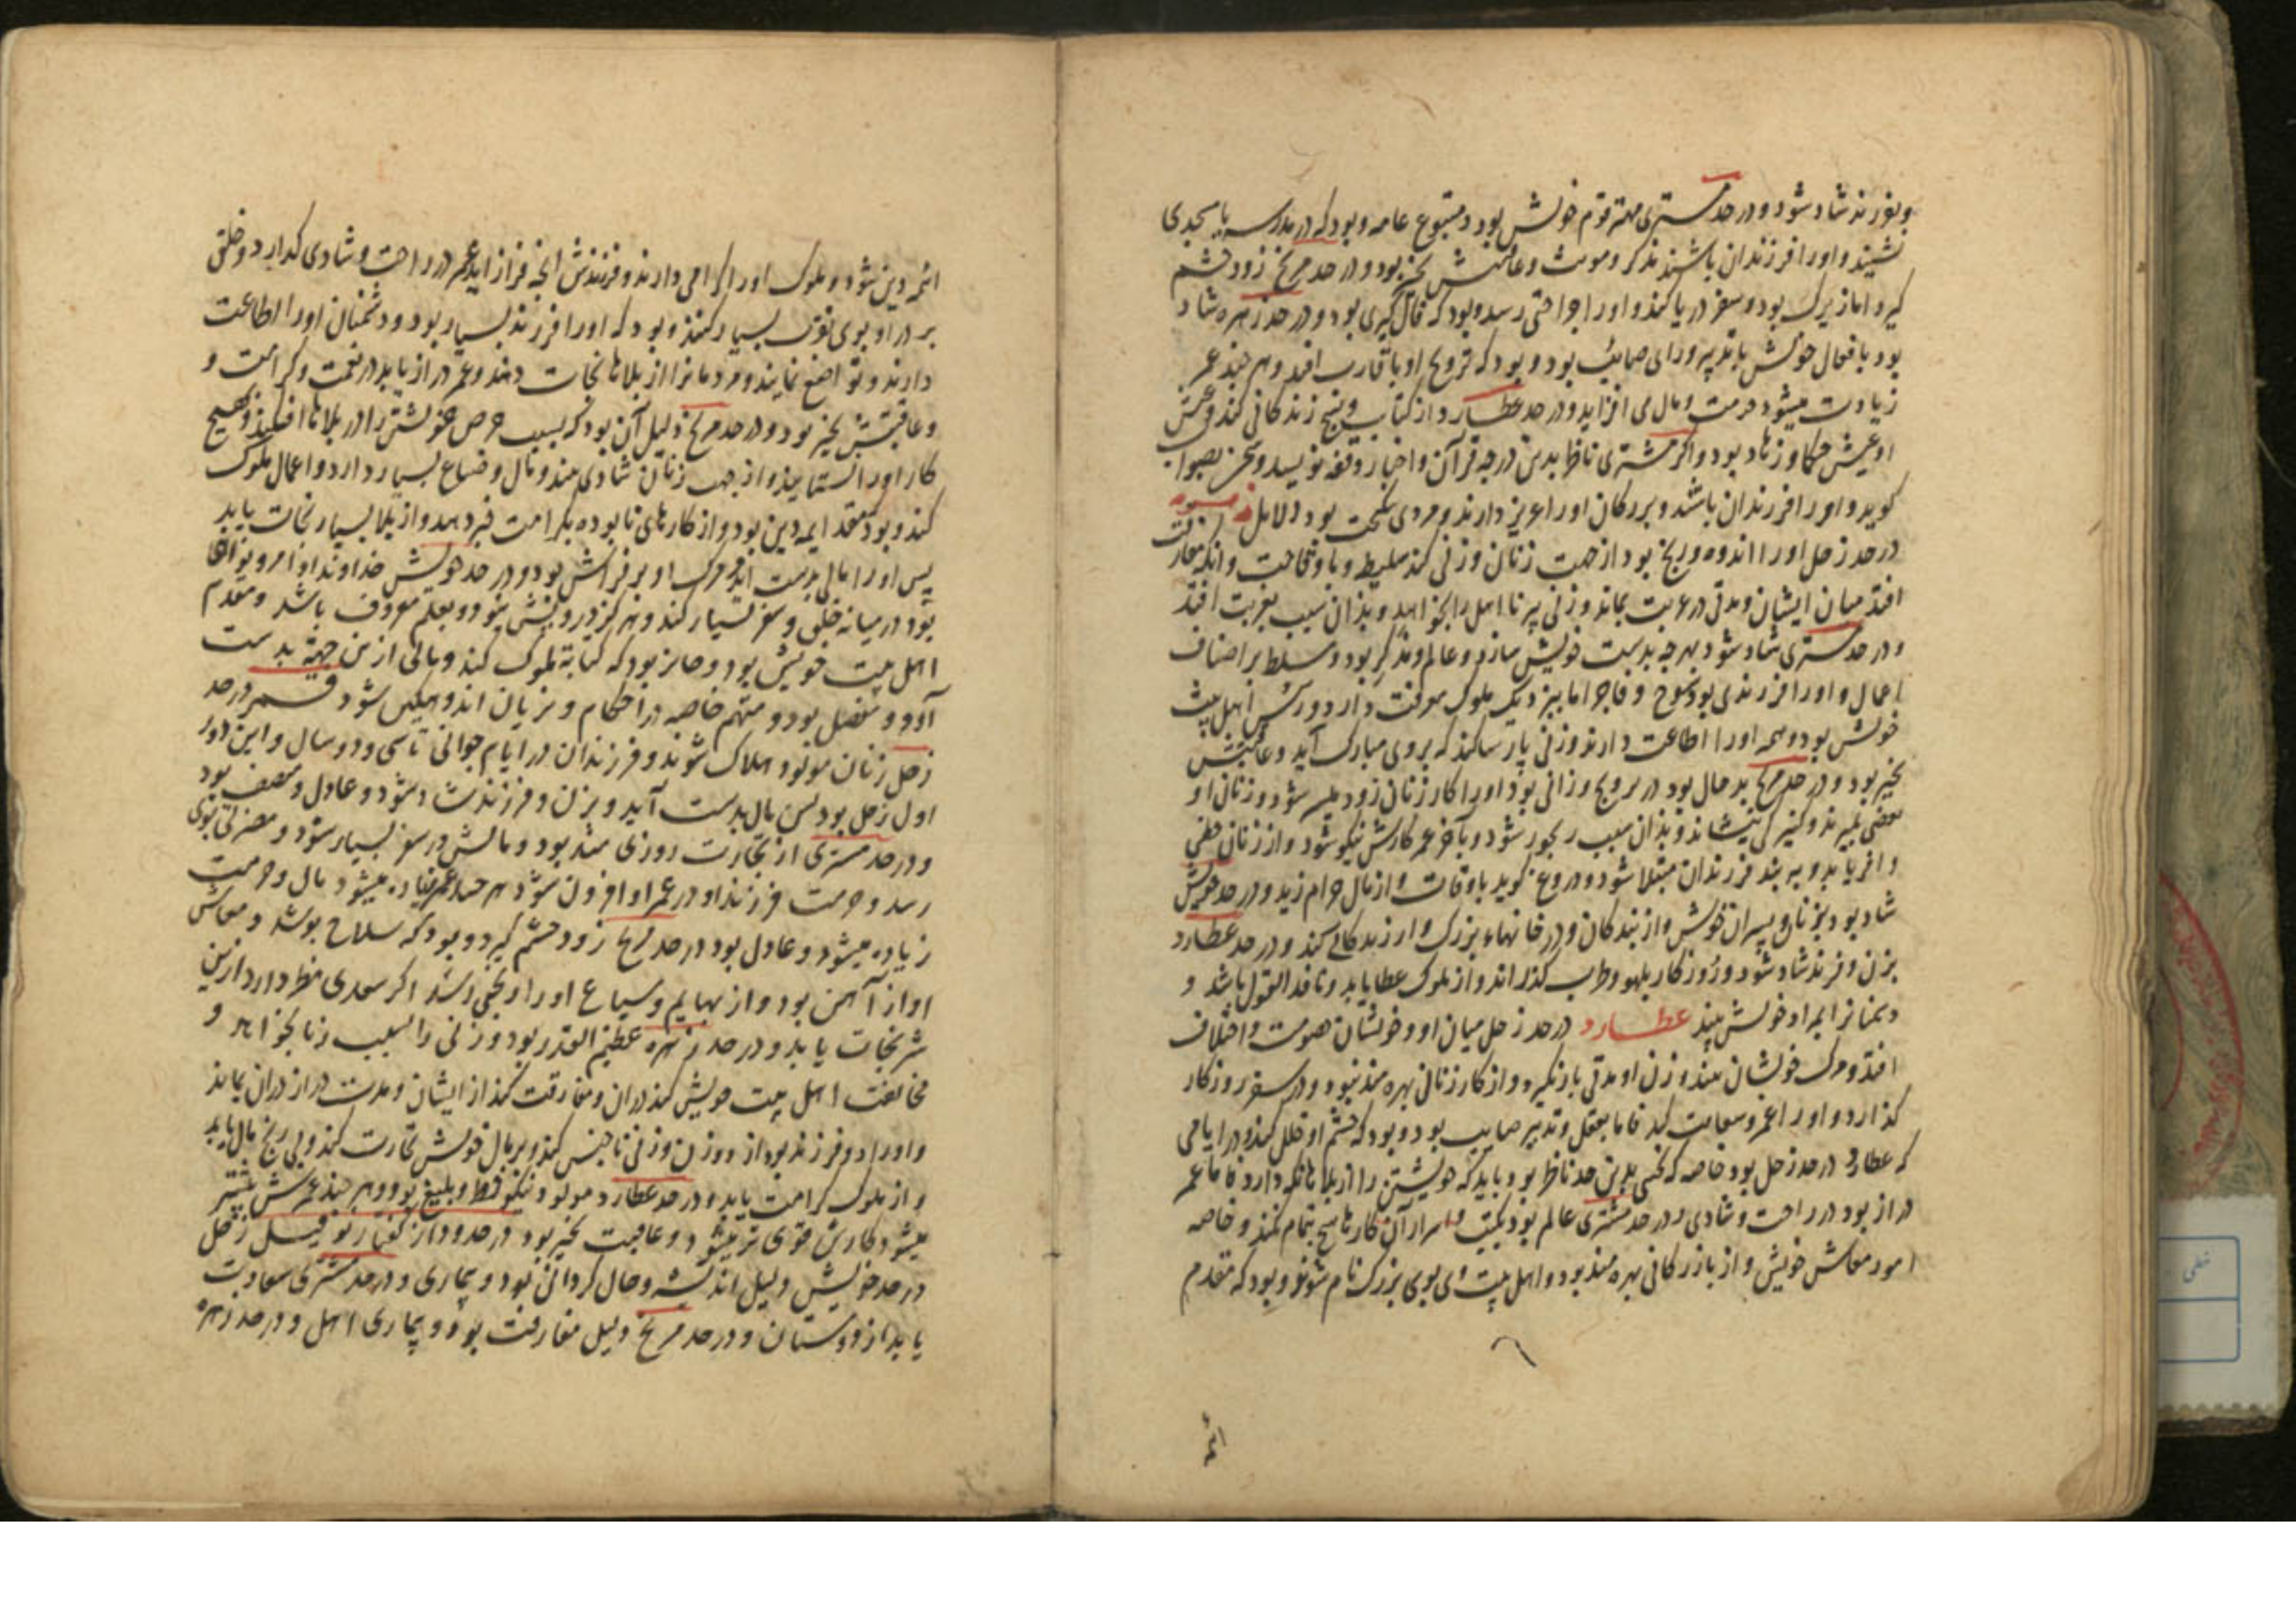 و بفرزند شاد شود و در حد مشتری مهتر قوم خویش بود و متبوع عامه و بود که در مدرسه یا مسجدی
نشیند و او را فرزندان باشند مذکر و مونث و عاقبتش بخیر بود و در حد مریخ زود خشم
گیرد اما زیرک بود و سفر دریا کند و او را جراحتی رسد و بود که فال گیری بود و در حد زهره شاد
بود بافعال خویش با تدبیر و رای صایب بود و بود که تزویج او باقارب افتد و هر چند عمر
زیادت میشود حرمت و مال می افزاید و در حد عطارد از کتاب و نسخ زندگانی کند و عیش
او عیش حکما و زهاد بود و اگر مشتری ناظر بدین درجه قرآن و اخبار و فقه نویسد و سخن بصواب
گوید و او را فرزندان باشد و بزرگان او را عزیز دارند و مردی بود دلایل زهره
در حد زحل او را اندوه و رنج بود از جهت زنان و زنی کند سلیطه و با وقاحت و اندک مفارقت
افتد میان ایشان و مدتی در غربت بماند و زنی پیر نااهل را بخواهد و بدان سبب بغربت افتد
و در حد مشتری شاد شود بهرچه بدست خویش سازد و عالم و مذکر بود و مسلط بر اصناف
اعمال و او را فرزندی بود شوخ و فاجر اما بنزدیک ملوک معرفت دارد و رئیس اهل بیت
خویش بود و همه او را اطاعت دارند و زنی پارسا کند که بروی مبارک آید و عاقبتش
بخیر بود و در حد مریخ بد حال بود در تزویج و زانی بود او را کار زنان زود میسر شود و زنان او
بعضی بمیرند و کنیزکی بنشاند و بدان سبب رنجور شود و بآخر عمر کارش نیکو شود و از زنان حظی
وافر یابد و به بند فرزندان مبتلا شود و دروغ گوید باوقات و از مال حرام زید و در حد خویش
شاد بود بزنان و پسران خویش و از بندگان و در خانهاء بزرگ وار زندگانی کند و در حد عطارد
بزن و فرزند شاد شود و روزگار بلهو و طرب گذراند و از ملوک عطا یابد و نافذ القول باشد و
دشمنانرا بمراد خویش بیند عطارد در حد زحل میان او و خویشان خصومت و اختلاف
افتد و مرگ خویشان بیند و زن او مدتی باز نگیرد و از کار زنان بهره مند نبود و در سفر روزگار
گذارد و او را غمز و سعایت کنند فاما بعقل و تدبیر صایب بود و بود که چشم او خلل کند در ایامی
که عطارد در حد زحل بود خاصه که نحس بدین حد ناظر بود و باید که خویشتن را از بلاها نگه دارد فاما عمر
دراز بود در راحت و شادی و در حد مشتری عالم بود بکتب و اسرار آن کارها هیچ تمام نکند و خاصه
امور معاش خویش و از بازرگانی بهره مند بود و اهل بیت وی بوی بزرگ نام شوند و بود که مقدم
ائمه
ائمه دین شود و ملوک او را گرامی دارند و فرزندش آنچه فراز آید عمر در راحت و شادی گذارد و خلق
بر در او بوی تقرب بسیار کنند و بود که او را فرزند بسیار بود و دشمنان او را اطاعت
دارند و تواضع نمایند و مردمانرا از بلاها نجات دهند و عمر دراز یابد در نعمت و کرامت و
و عاقبتش بخیر بود و در حد مریخ دلیل آن بود که بسبب حرص خویشتن را در بلاها افکند و هیچ
کار او راست نیاید و از جهت زنان شادی بیند و مال و ضیاع بسیار دارد و اعمال ملوک
کند و بود مقتدای ایمه دین بود و از کارهای نابوده بکرامت خبر دهد و از بلا بسیار نجات یابد
پس او را مالی بدست آید و مرگ او بر فراش بود و در حد خویش خداوند اوامر و نواهی
بود در میانه خلق و سفر بسیار کند و هرگز درویش نبود و بعلم معروف باشد و مقدم
اهل بیت خویش بود و جایز بود که کتابة ملوک کند و مالی از من جهة بدست
آورد و مفضل بود و متهم خاصه در احکام و بزیان اندوهگین شود قمر در حد
زحل زنان مولود هلاک شوند و فرزندان در ایام جوانی تا سی و دو سال و این دور
اول زحل بود پس مال بدست آید و بزن و فرزند شاد شود و عادل و منصف بود
و در حد مشتری از تجارت روزی مند بود و مالش در سفر بسیار شود و مضرتی بوی
رسد و حرمت فرزند او در عمر او افزون شود هر چند عمر زیاده میشود مال و حرمت
زیاده میشود و عادل بود در حد مریخ زود خشم گیرد و بود که سلاح پوشد و معاش
او از آهن بود و از بهایم و سباع او را رنجی رسد اگر سعدی نظر دارد ازین
شر نجات یابد و در حد زهره عظیم القدر بود و زنی را بسبب زنا بخواهد و
مخالفت اهل بیت خویش کند در آن و مفارقت کند از ایشان و مدت دراز در آن بماند
و او را دو فرزند بود از دو زن و زنی ناجنس کند و بر مال خویش تجارت کند و بی رنج مال یابد
و از ملوک کرامت یابد و در حد عطارد مولود نیکو خط و بلیغ بود و هر چند عمرش بیشتر
میشود کارش قوی تر میشود و عاقبت بخیر بود در حدود از گفتار زحل
در حد خویش دلیل اندیشه و حال گردانی بود و بیماری و در حد مشتری سعادت
یابد از دوستان و در حد مریخ دلیل مفارقت بود و بیماری اهل و در حد زهره